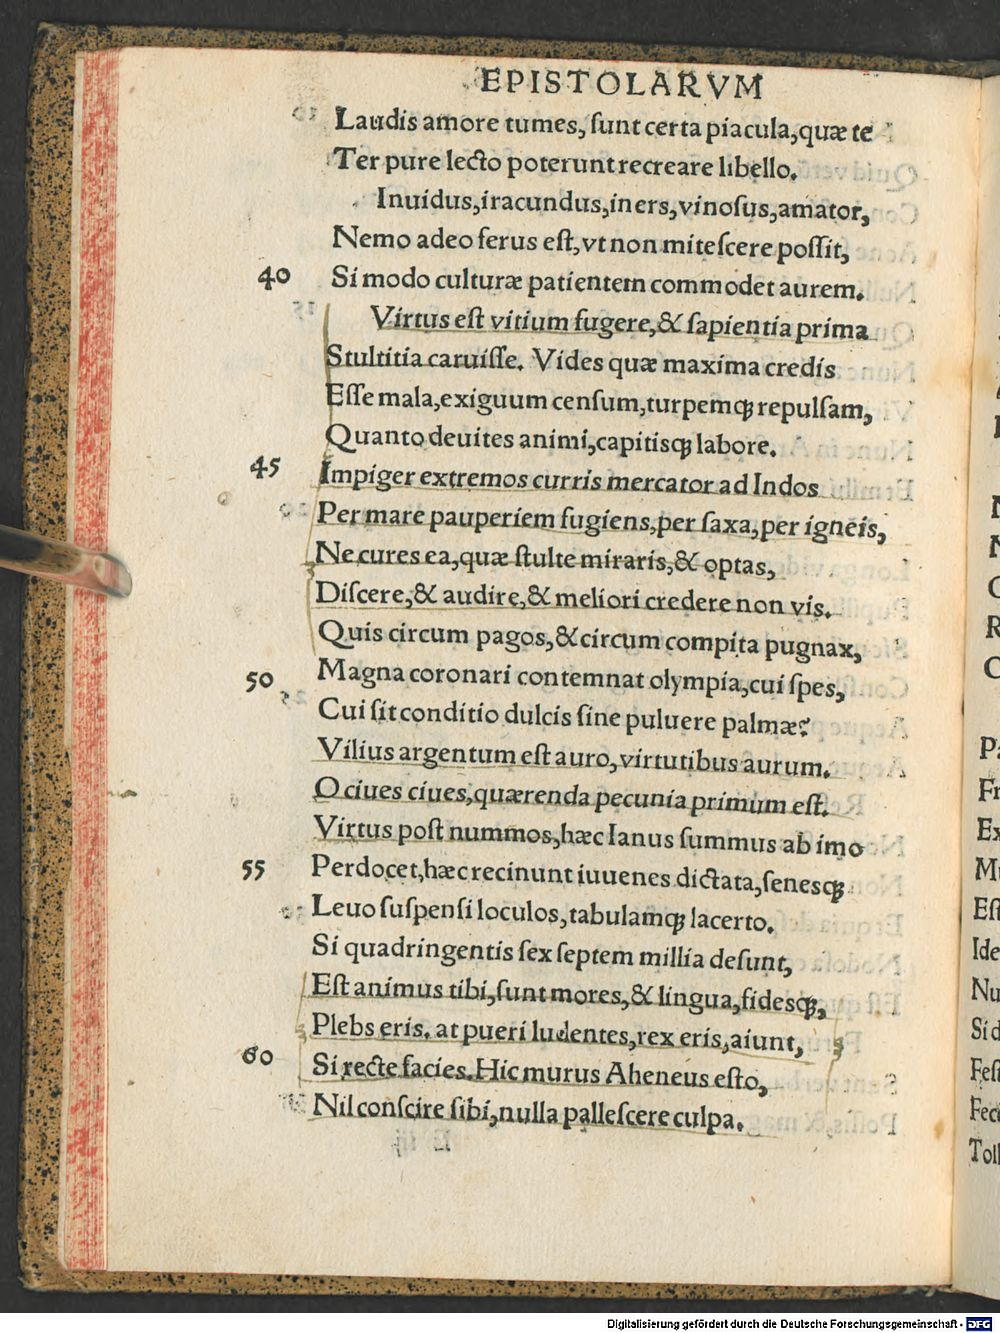 EPISTOLARVM
Laudis amore tumes, ſunt certa piacula, quæ te
Ter pure lecto poterunt recreare libello.
Inuidus, iracundus, iners, vinoſus, amator,
Nemo adeo ferus eſt, vt non miteſcere poſſit,
40 Si modo culturæ patientem commodet aurem.
Virtus eſt vitium fugere, & ſapientia prima
Stultitia caruiſſe. Vides quæ maxima credis
Eſſe mala, exiguum cenſum, turpemq; repulſam,
Quanto deuites animi, capitisq; labore.
45 Impiger extremos curris mercator ad Indos
Per mare pauperiem fugiens, per ſaxa, per igneis,
Ne cures ea, quæ ſtulte miraris, & optas,
Diſcere, & audire, & meliori credere non vis.
Quis circum pagos, & circum compita pugnax,
50 Magna coronari contemnat olympia, cui ſpes,
Cui ſit conditio dulcis ſine puluere palmæ?
Vilius argentum eſt auro, virtutibus aurum.
O ciues ciues, quærenda pecunia primum eſt.
Virtus poſt nummos, hæc Ianus ſummus ab imo
55 Perdocet, hæc recinunt iuuenes dictata, ſenesq;
Leuo ſuſpenſi loculos, tabulamq; lacerto.
Si quadringentis ſex ſeptem millia deſunt,
Eſt animus tibi, ſunt mores, & lingua, fidesq;,
Plebs eris. at pueri ludentes, rex eris, aiunt,
60 Si recte facies. Hic murus Aheneus eſto,
Nil conſcire ſibi, nulla palleſcere culpa.
Digitalisierung gefördert durch die Deutsche Forschungsgemeinschaft - DFG